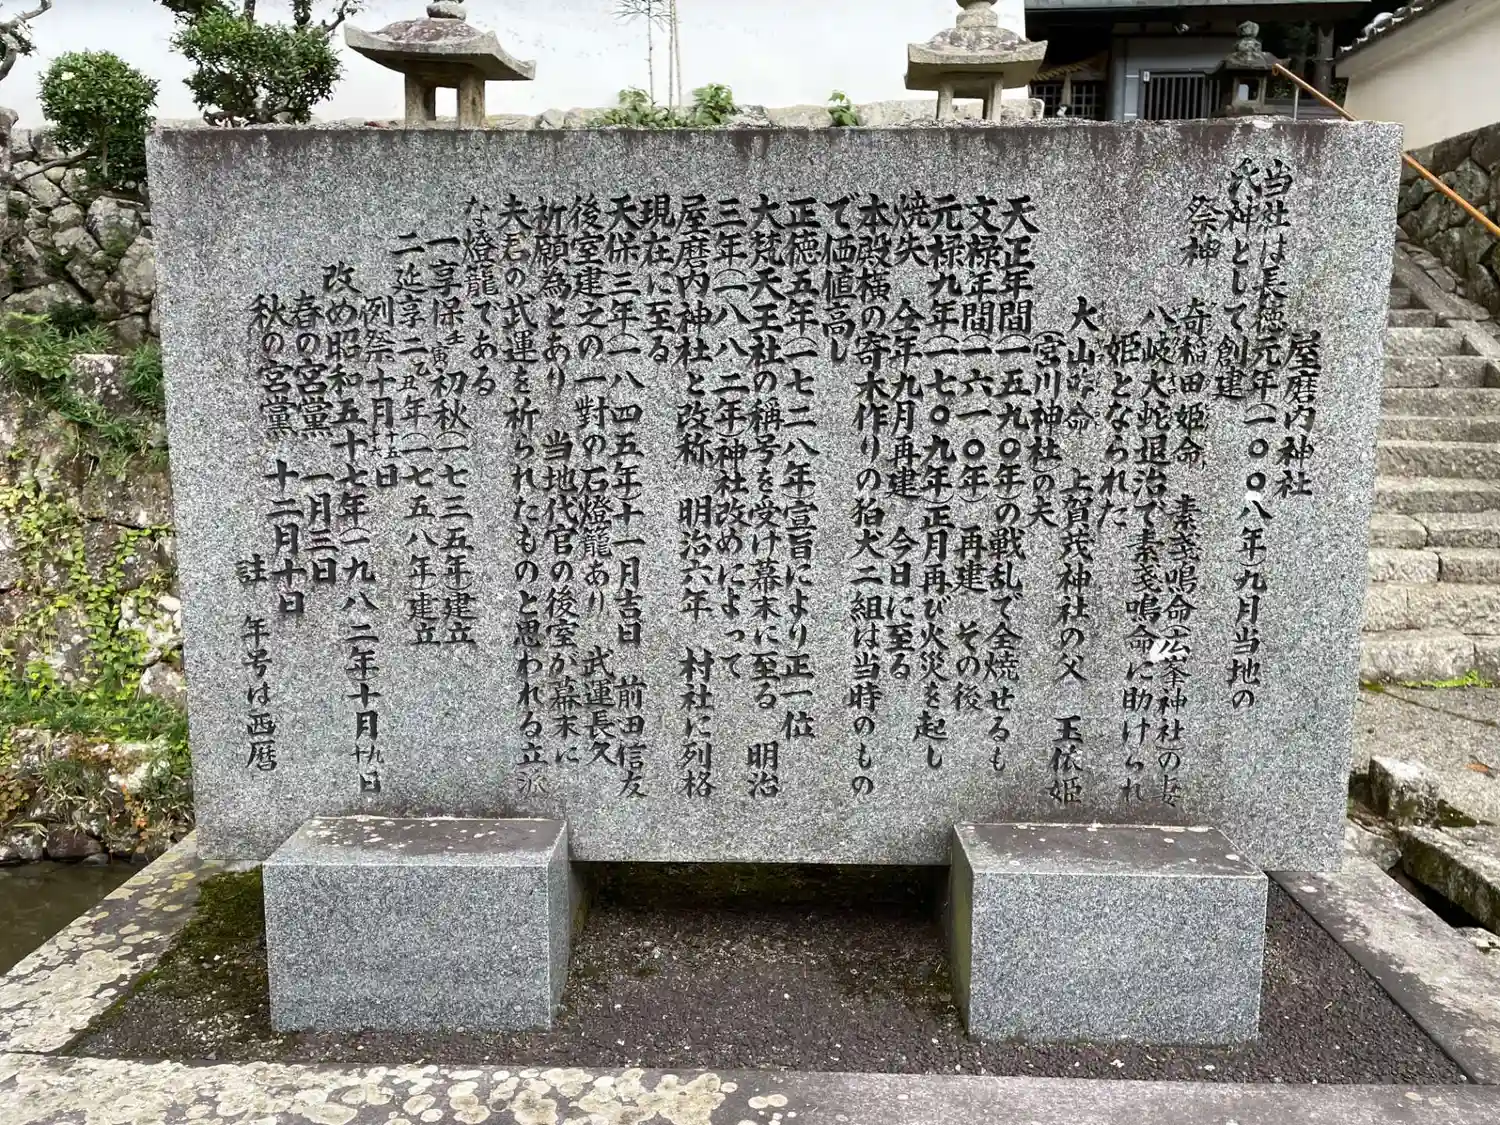 屋磨内神社
当社は長徳元年(一〇〇八年)九月当地の
氏神として創建
祭神 奇稲田姫命 素戔鳴命(広峯神社)の妻
八岐大蛇退治で素戔鳴命に助けられ
姫となられた
大山咋命 上賀茂神社の父 玉依姫
(宮川神社)の夫
天正年間(一五九〇年)の戦乱で全焼せるも
文禄年間(一六一〇年)再建 その後
元禄九年(一七〇九年)正月再び火災を起し
焼失 仝年九月再建 今日に至る
本殿横の寄木作りの狛犬二組は当時のもの
で価値高し
正徳五年(一七二八年)宣旨により正一位
大梵天王社の稱号を受け幕末に至る 明治
三年(一八八二年)神社改めによって
屋磨内神社と改称 明治六年 村社に列格
現在に至る
天保三年(一八四五年)十一月吉日 前田信友
後室建之の一對の石燈籠あり 武運長久
祈願為とあり 当地代官の後室が幕末に
夫君の武運を祈られたものと思われる立派
な燈籠である
一享保壬寅初秋(一七三五年)建立
二延享二乙丑年(一七五八年)建立
例祭十月十五十六日
改め昭和五十七年(一九八二年)十月十九日
春の宮黨 一月三日
秋の宮黨 十二月十日
註 年号は西暦